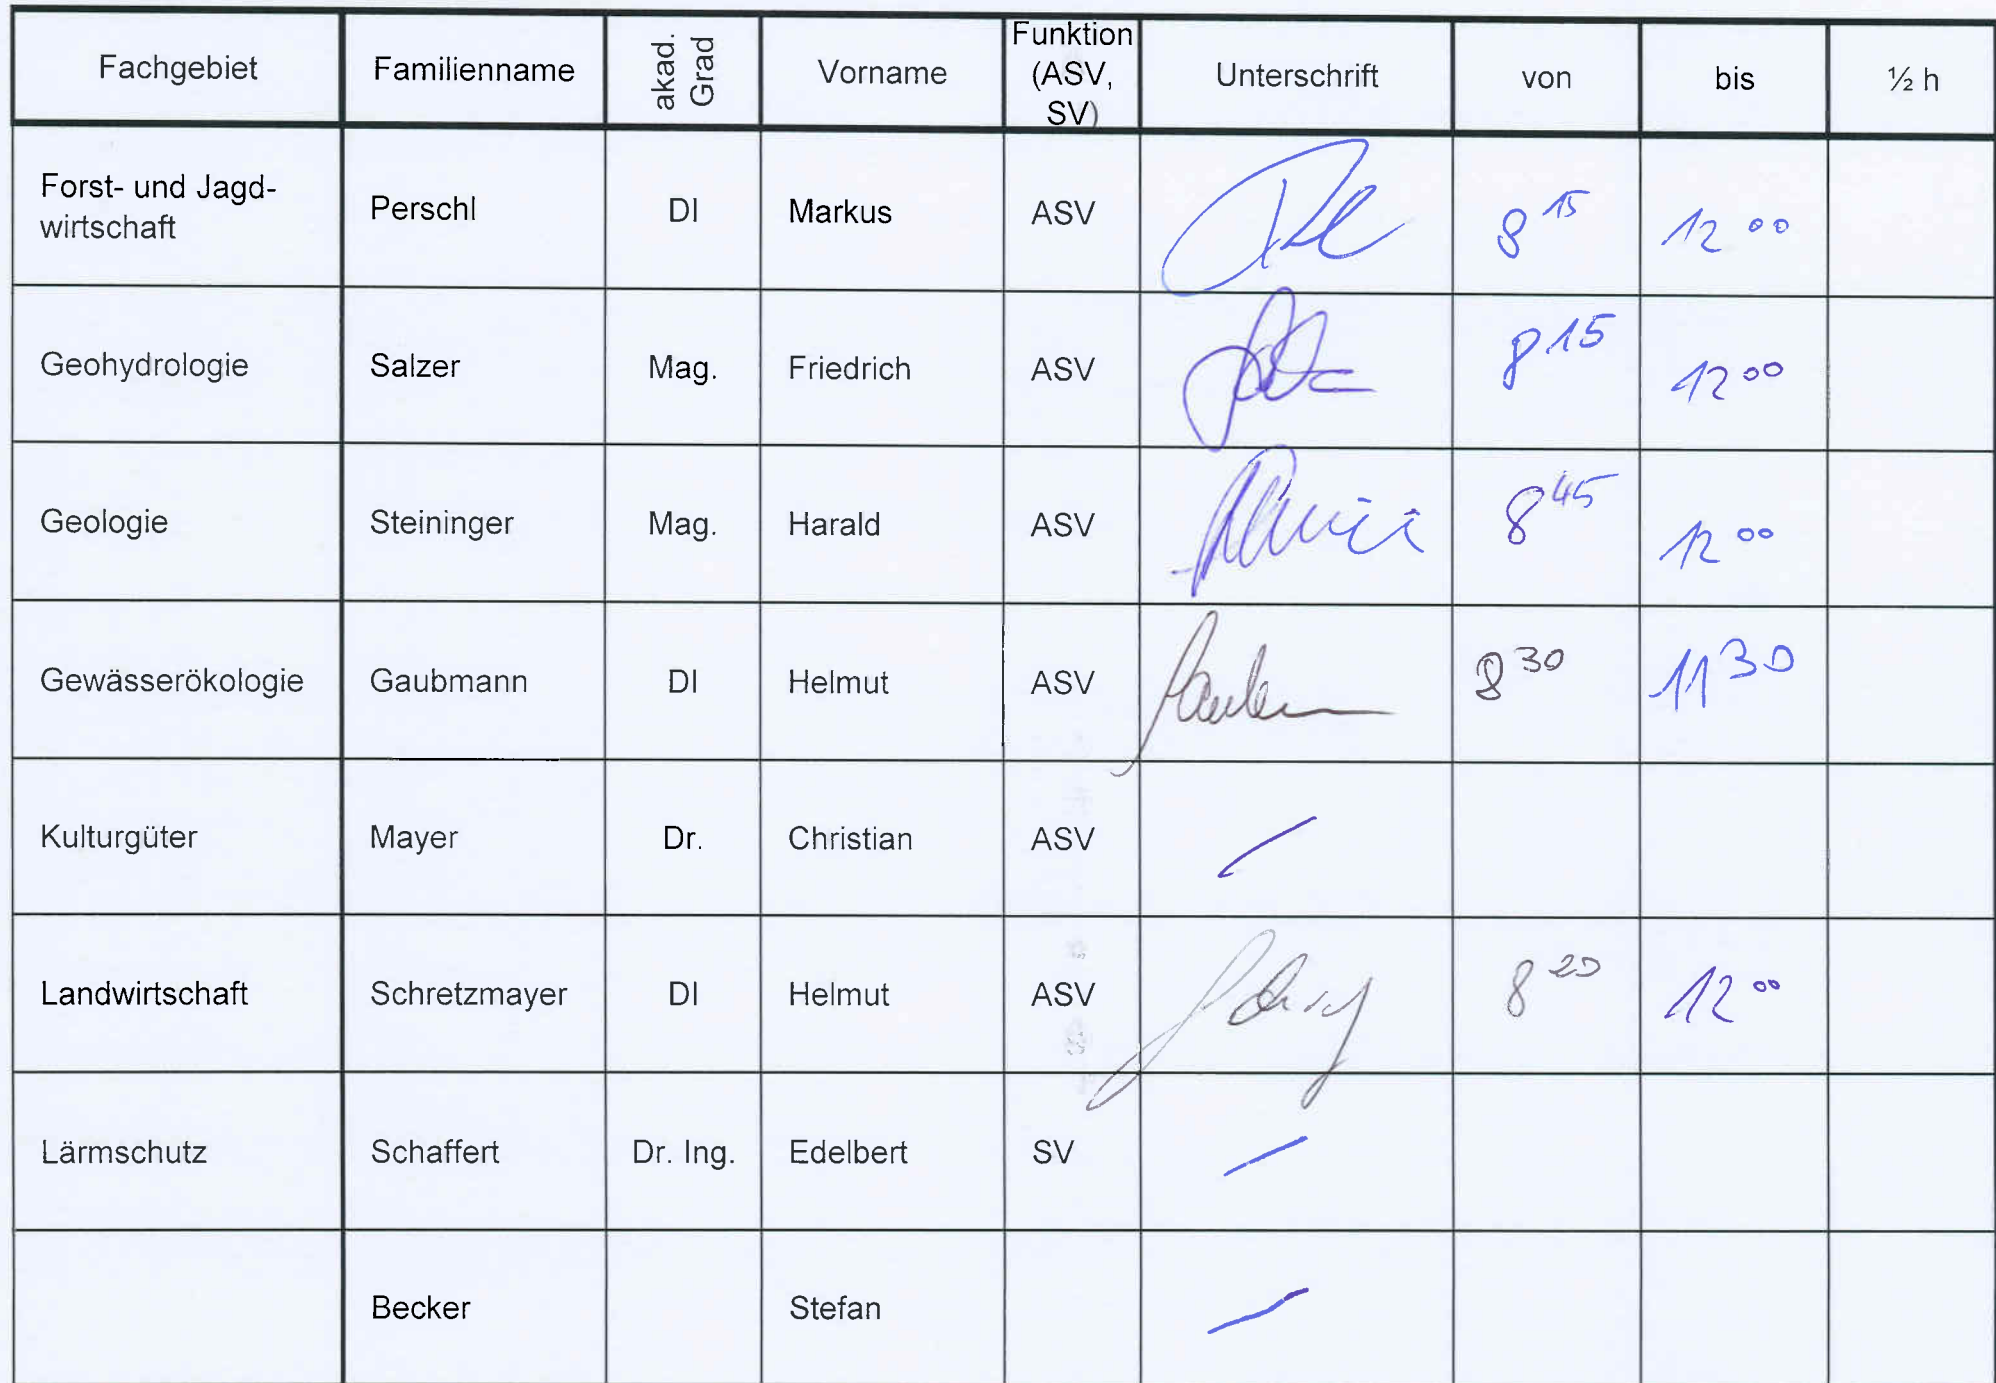 Fachgebiet Familienname akad. Grad Vorname Funktion (ASV, SV) Unterschrift von bis ½ h
Forst- und Jagd-
wirtschaft Perschl DI Markus ASV 8 15 12 00
Geohydrologie Salzer Mag. Friedrich ASV 8 15 12 00
Geologie Steininger Mag. Harald ASV 8 45 12 00
Gewässerökologie Gaubmann DI Helmut ASV 8 30 11 30
Kulturgüter Mayer Dr. Christian ASV
Landwirtschaft Schretzmayer DI Helmut ASV 8 20 12 00
Lärmschutz Schaffert Dr. Ing. Edelbert SV
Becker Stefan